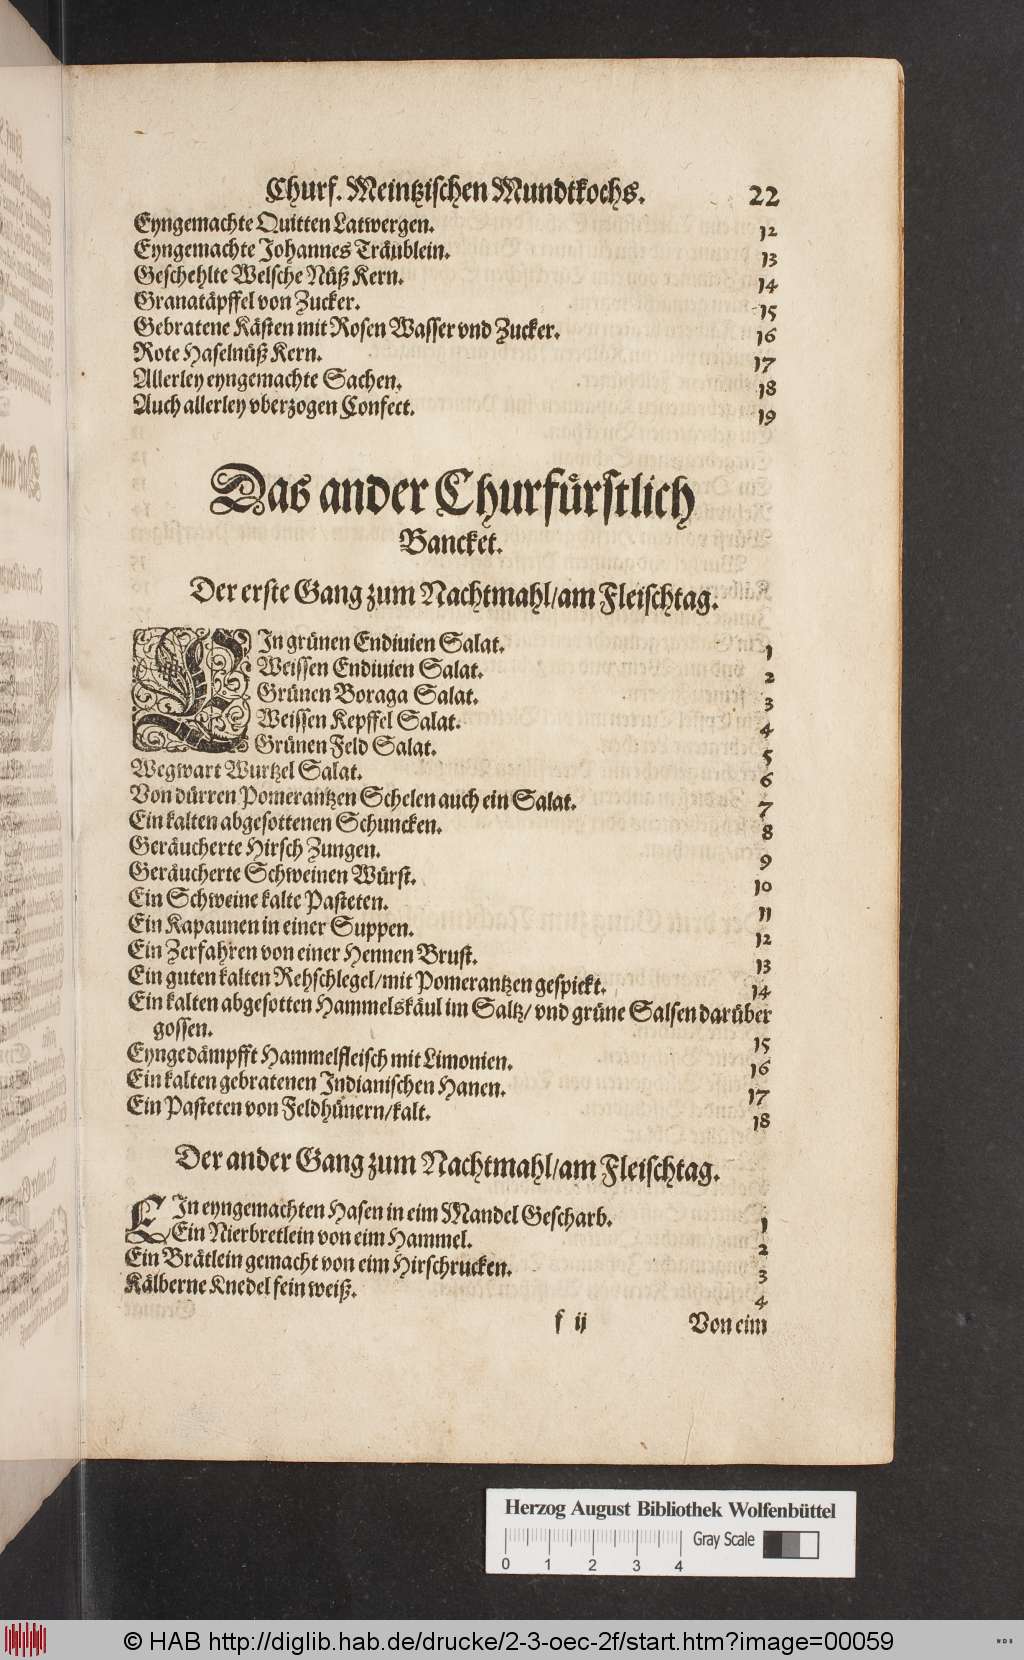 Churf. Meintzischen Mundtkochs. 22
Eyngemachte Quitten Latwergen. 12
Eyngemachte Johannes Träublein. 13
Geschehlte Welsche Nüß Kern. 14
Granatäpffel von Zucker. 15
Gebratene Kästen mit Rosen Wasser vnd Zucker. 16
Rote Haselnüß Kern. 17
Allerley eyngemachte Sachen. 18
Auch allerley vberzogen Confect. 19
Das ander Churfürstlich
Bancket.
Der erste Gang zum Nachtmahl/am Fleischtag.
EIn grünen Endiuien Salat. 1
Weissen Endiuien Salat. 2
Grünen Boraga Salat. 3
Weissen Kepffel Salat. 4
Grünen Feld Salat. 5
Wegwart Wurtzel Salat. 6
Von dürren Pomerantzen Schelen auch ein Salat. 7
Ein kalten abgesottenen Schuncken. 8
Geräucherte Hirsch Zungen. 9
Geräucherte Schweinen Würst. 10
Ein Schweine kalte Pasteten. 11
Ein Kapaunen in einer Suppen. 12
Ein Zerfahren von einer Hennen Brust. 13
Ein guten kalten Rehschlegel/mit Pomerantzen gespickt. 14
Ein kalten abgesotten Hammelskäul im Saltz/ vnd grüne Salsen darüber
gossen. 15
Eyngedämpfft Hammelfleisch mit Limonien. 16
Ein kalten gebratenen Indianischen Hanen. 17
Ein Pasteten von Feldhünern/kalt. 18
Der ander Gang zum Nachtmahl/am Fleischtag.
EIn eyngemachten Hasen in eim Mandel Gescharb. 1
Ein Nierbretlein von eim Hammel. 2
Ein Brätlein gemacht von eim Hirschrucken. 3
Kälberne Knedel fein weiß. 4
f ij Von eim
Herzog August Bibliothek Wolfenbüttel
0 1 2 3 4 Gray Scale
© HAB http://diglib.hab.de/drucke/2-3-oec-2f/start.htm?image=00059